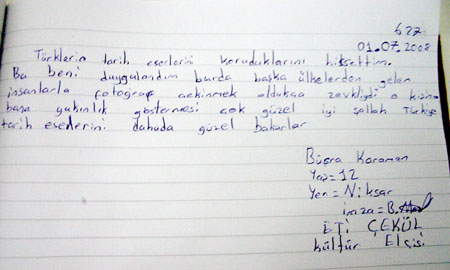 622
01.07.2008
Türklerin tarih eserlerini koruduklarını hissettim.
Bu beni duygulandım burda başka ülkelerden gelen
insanlarla fotoğraf çekinmek oldukça zevkliydi o kızın
bana yakınlık göstermesi çok güzel iyi şallah Türkiye
tarih eserlerini dahada güzel bakarlar
Büşra Karaman
Yaş=12
Yer=Niksar
imza=B.
ETİ ÇEKÜL
kültür Elçisi